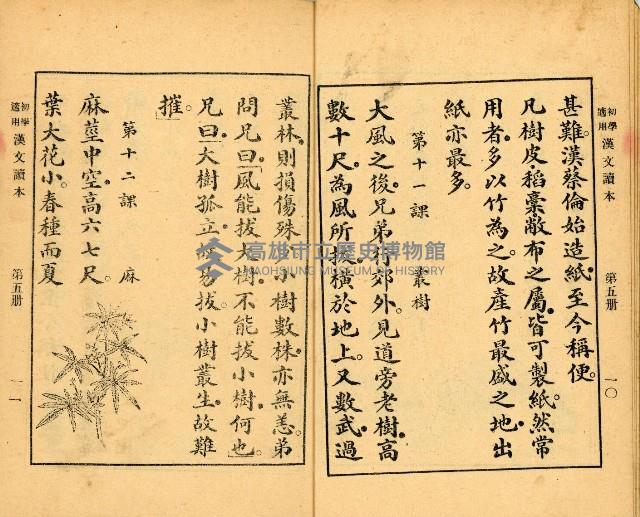 初學適用 漢文讀本 第五册 一〇
甚難。漢蔡倫始造紙。至今稱便。
凡樹皮稻稾敝布之屬。皆可製紙。然常
用者。多以竹為之。故產竹最盛之地。出
紙亦最多。
第十一課 叢樹
大風之後。兄弟行郊外。見道旁老樹。高
數十尺。為風所拔。橫於地上。又數武。過
叢林。則損傷殊 小樹數株。亦無恙。弟
問兄曰。風能拔大樹。不能拔小樹。何也。
兄曰。大樹孤立。故易拔。小樹叢生。故難
摧。
第十二課 麻
麻莖中空。高六七尺。
葉大花小。春種而夏
初學適用 漢文讀本 第五册 一一
高雄市立歷史博物館
KAOHSIUNG MUSEUM OF HISTORY